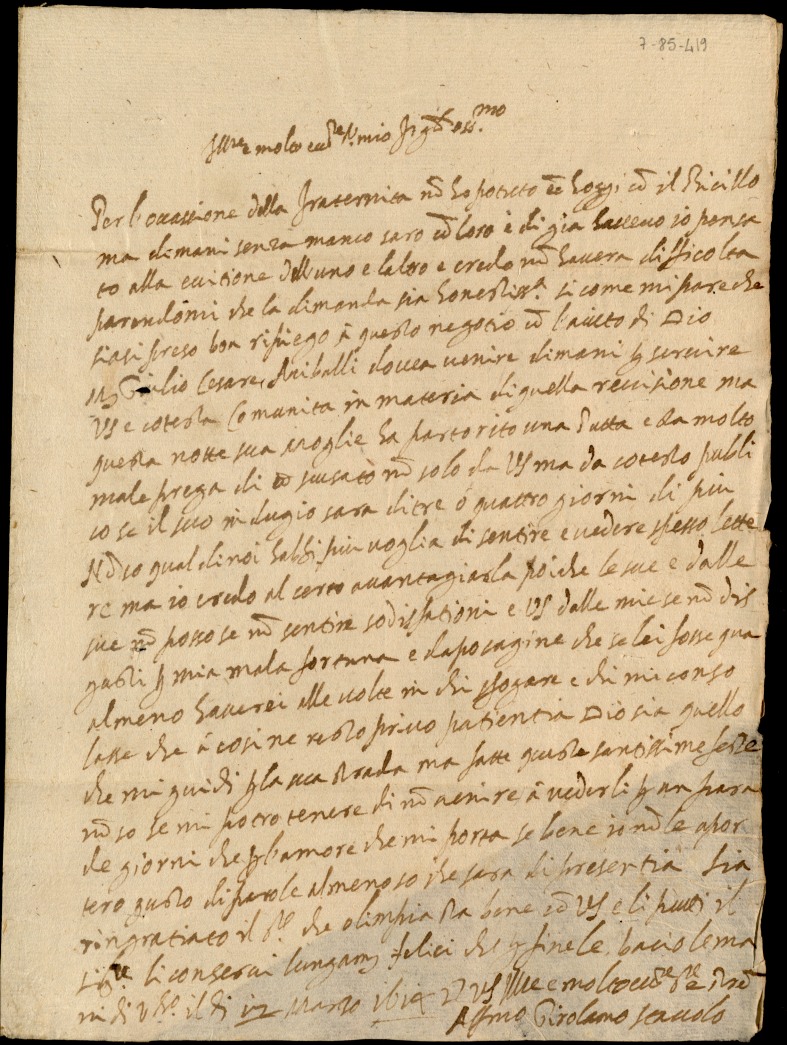 7-85-419
Ill.re e molto ecc.te S.r mio Sig.r oss.mo
Per l'ocassione della fraternita nõ ho potuto hoggi cõ il
ma dimani senza manco saro cõ loro e di gia havevo io pensa
to alla dell uno e laltro e credo nõ havera difficolta
parendomi che la dimanda sia honestiss.a si come mi pare che
siasi preso bon ripiego à questo negotio cõ l'aiuto di Dio
Giulio Cesare Aniballi dovea venire dimani servire
VS e cotesta Comunita in materia di quella revisione ma
questa notte sua moglie ha partorito una Putta e sta molto
male prega di scusato nõ solo da VS ma da cotesto publi
co se il suo indugio sara di tre ó quattro giorni di piu
Nõ so qual di noi habbi piu voglia di sentire e vedere spesso lette
re ma io credo al certo avantagiarla poiche le sue e dalle
sue nõ posso se nõ sentire sodisfationi e VS dalle mie se nõ dis
gusti mia mala fortuna e dapocagine che se lei fosse qua
almeno haverei alle volte in chi sfogare e chi mi conso
lasse che á cosi ne resto privo patientia Dio sia quello
che mi guidi la sua strada ma fatte queste santissime feste
nõ so se mi potro tenere di nõ venire á vederli un para
de giorni che l'amore che mi porta se bene io nõ le apor
tero gusto di parole almeno so che sara di presentia sia
ringratiato il che olimpia sta bene cõ VS e li putti il
li conservi felici che fine le bacio le ma
ni di il di 12 Marzo 1614 VS Ill.re e molto ecc.te
Aff.mo Girolamo